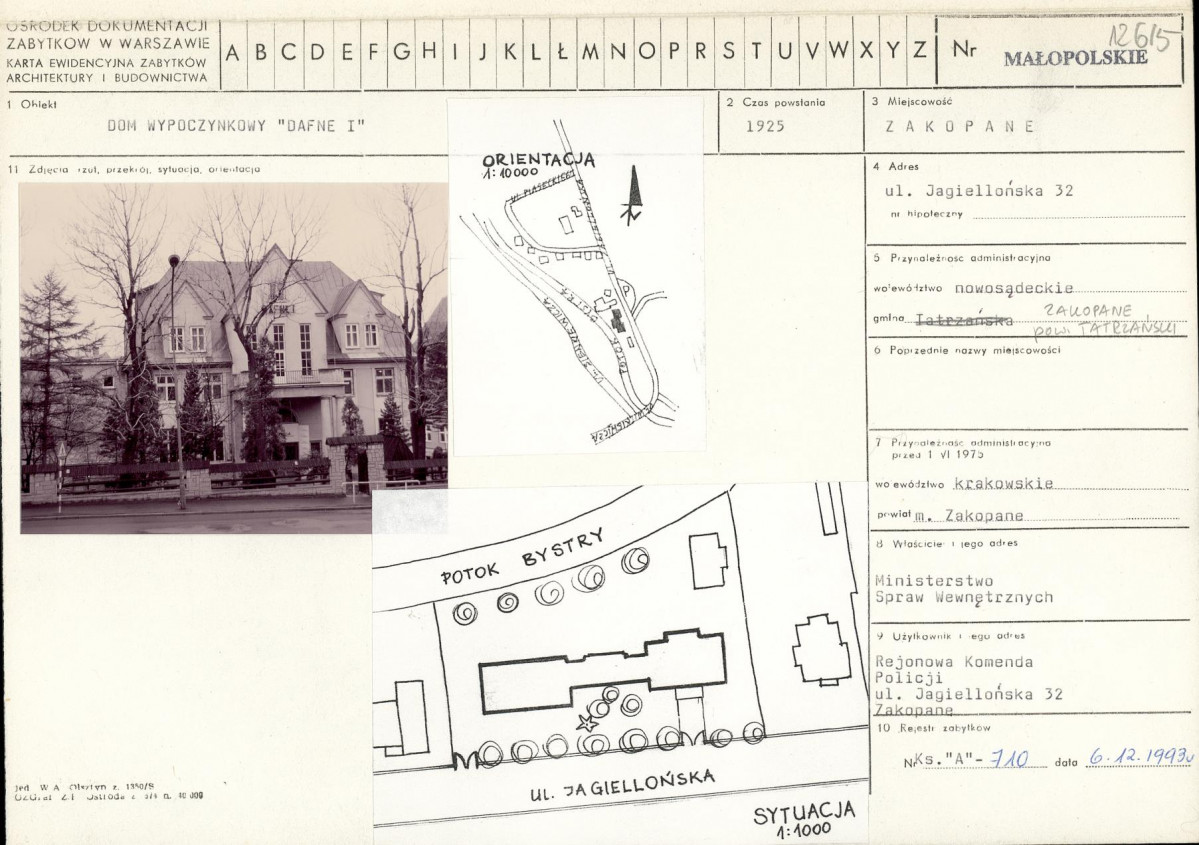 OŚRODEK DOKUMENTACJI
ZABYTKÓW W WARSZAWIE
KARTA EWIDENCYJNA ZABYTKÓW
ARCHITEKTURY I BUDOWNICTWA
A B C D E F G H I J K L Ł M N O P R S T U V W X Y Z
Nr
12615
MAŁOPOLSKIE
1 Obiekt
DOM WYPOCZYNKOWY "DAFNE I"
2 Czas powstania
1925
3 Miejscowość
ZAKOPANE
11 Zdjęcia rzut, przekrój, sytuacja, orientacja
ORIENTACJA
1:10000
P
4 Adres
ul. Jagiellońska 32
nr hipoteczny
5 Przynależność administracyjna
województwo nowosądeckie
gmina Tatrzańska ZAKOPANE
pow. TATRZAŃSKI
6 Poprzednie nazwy miejscowości
7 Przynależność administracyjna
przed 1 VI 1975
województwo krakowskie
powiat m. Zakopane
8 Właściciel i jego adres
Ministerstwo
Spraw Wewnętrznych
9 Użytkownik i jego adres
Rejonowa Komenda
Policji
ul. Jagiellońska 32
Zakopane
10 Rejestr zabytków
Nr Ks. "A"- 710 data 6.12.1993
POTOK BYSTRY
UL. JAGIELLOŃSKA
SYTUACJA
1:1000